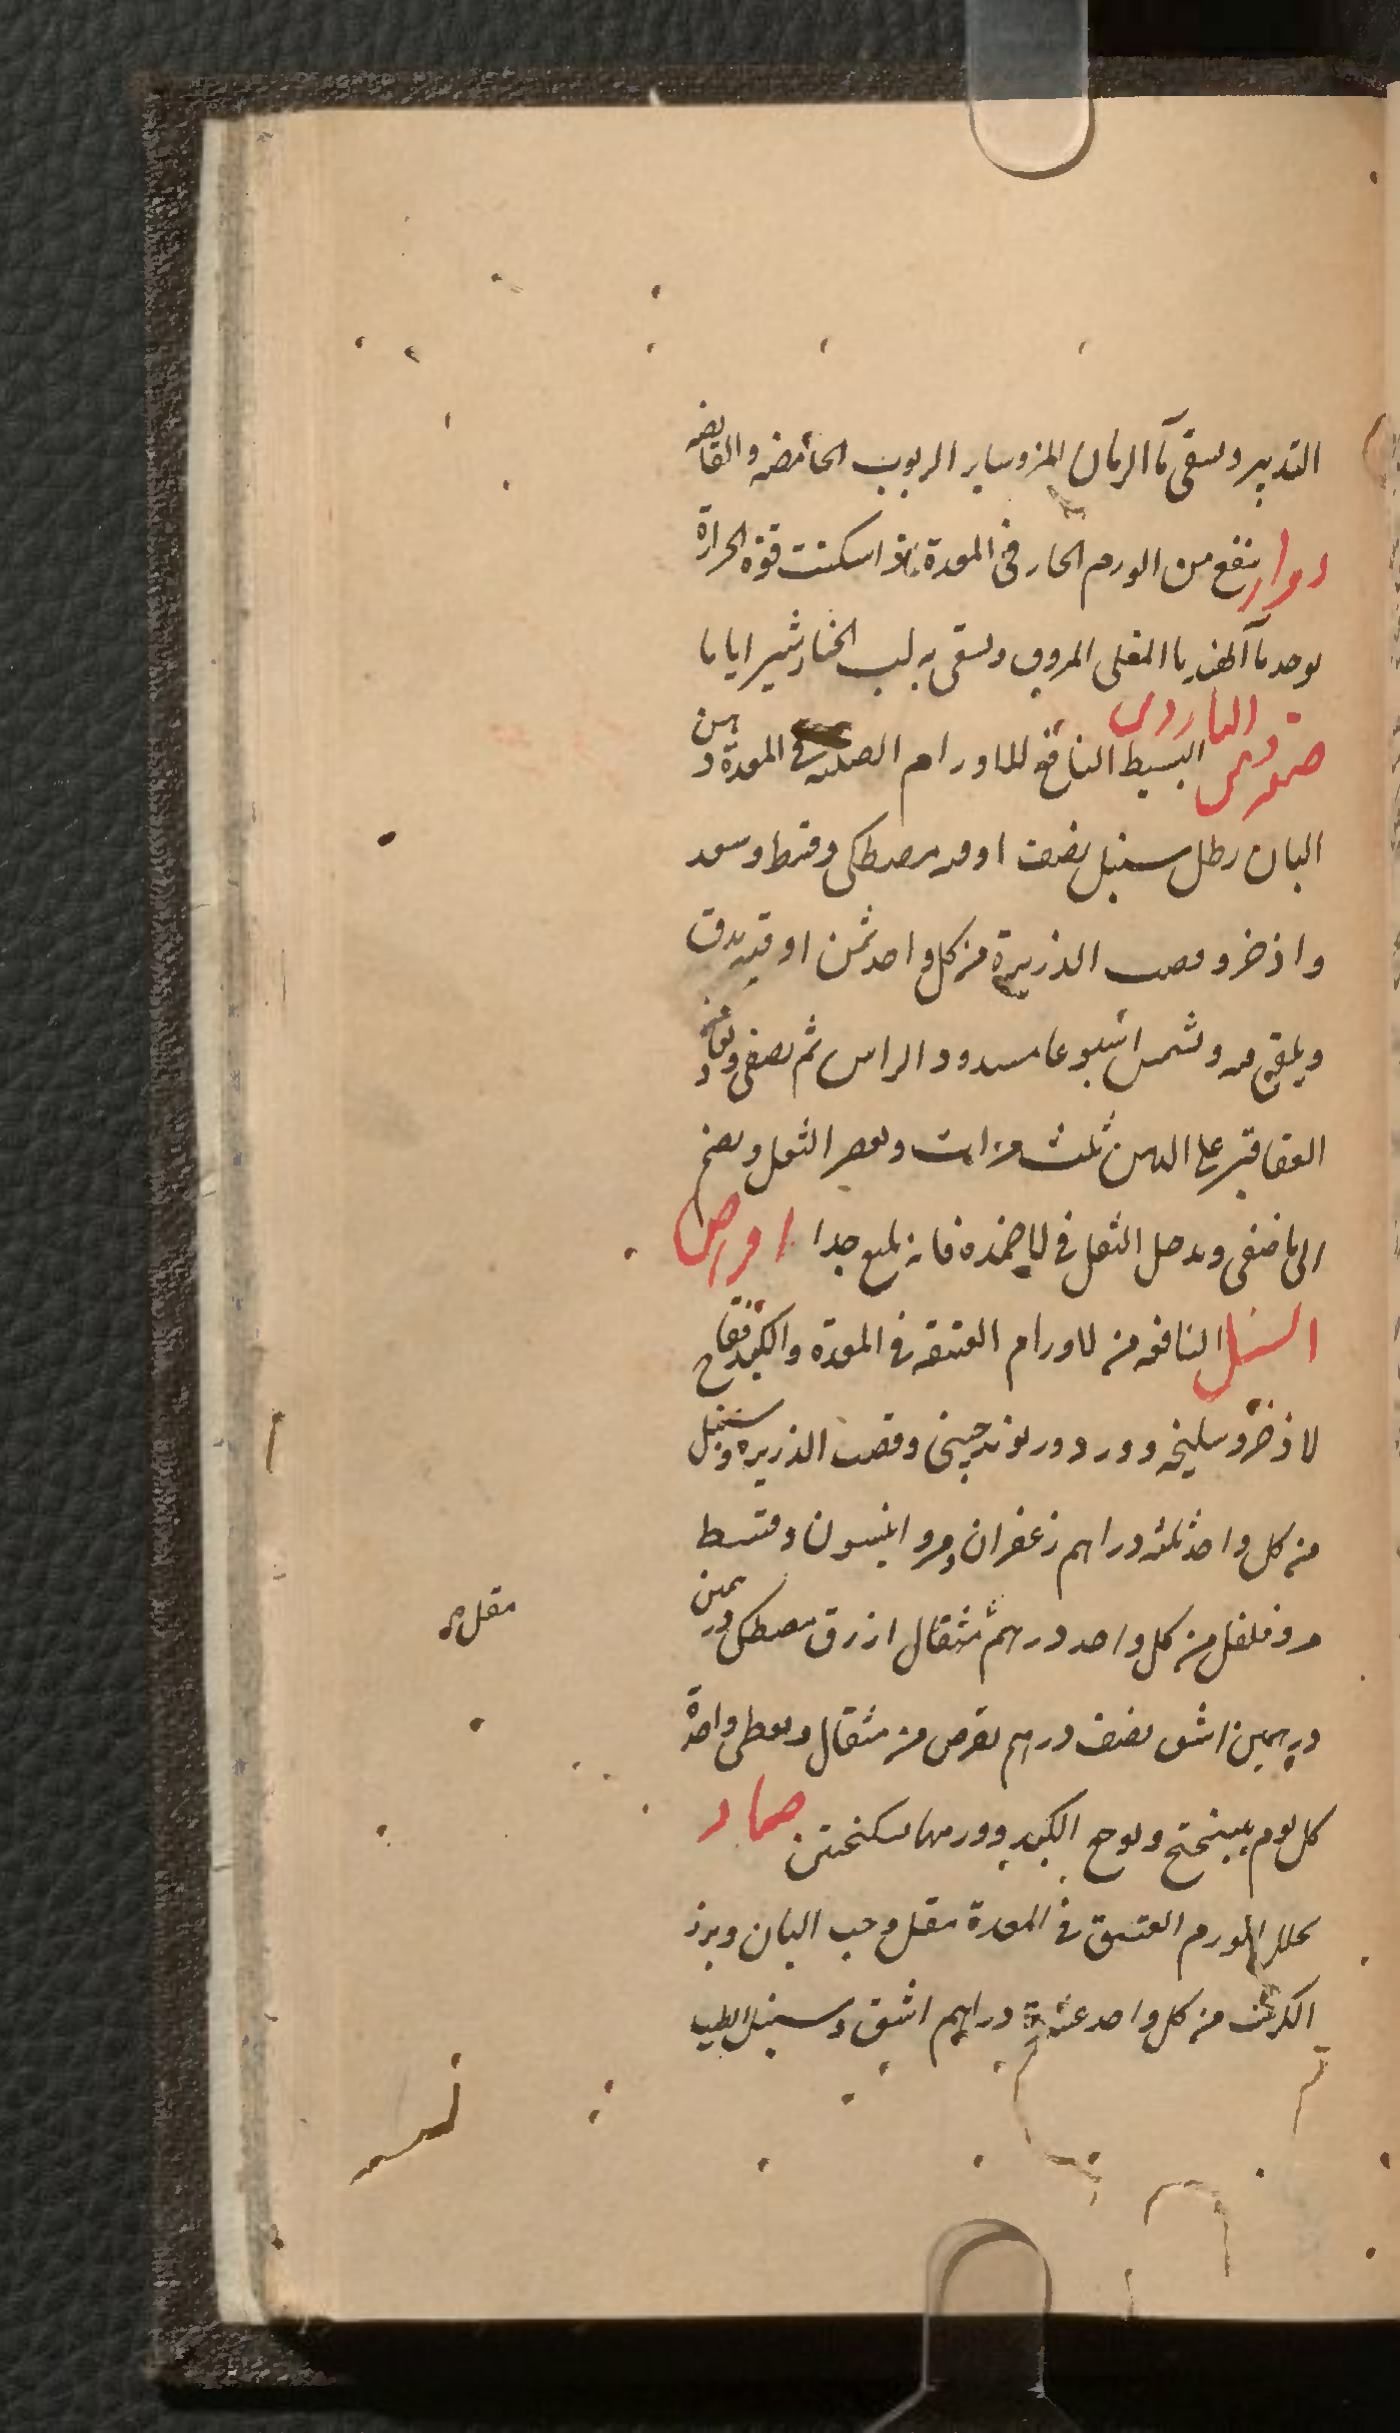 التدبير ويسقى مآ الرمان المز وساير الربوب الحامضه والقابضه
دوا ينفع من الورم الحار فى المعدة اذا سكنت قوة الحرارة
يوخذ مآ الهندبا المغلى المروق ويسقى به لب الخيارشنبر اياما
صفة دهن الناردين البسيط النافع للاورام الصلبه فى المعدة دهن
البان رطل سنبل نصف اوقيه مصطكى وقسط وسعد
واذخر وقصب الذريرة من كل واحد ثمن اوقيه يدق
ويلقى فيه ويشمس اسبوعا مسدود الراس ثم يصفى ويعاد
العقاقير على الدهن ثلث مرات ويعصر الثفل ويضم
الى ما صفى ويدخل الثفل فى الاضمدة فانه بليغ جدا اقراص
السنبل النافعه من الاورام العتيقه فى المعدة والكبد فقاح
الاذخر وسليخه وورد وريوند صينى وقصب الذريره وسنبل
من كل واحد ثلثه دراهم زعفران ومر وانيسون وقسط
مر وفلفل من كل واحد درهم مثقال ازرق مصطكى درهمين
مقل
درهمين اشق نصف درهم يقرص من مثقال ويعطى واحدة
كل يوم بميبختج ولوجع الكبد وورمها بسكنجبين ضماد
يحلل الورم العتيق فى المعدة مقل وحب البان وبزر
الكرنب من كل واحد عشرة دراهم اشق وسنبل الطيب